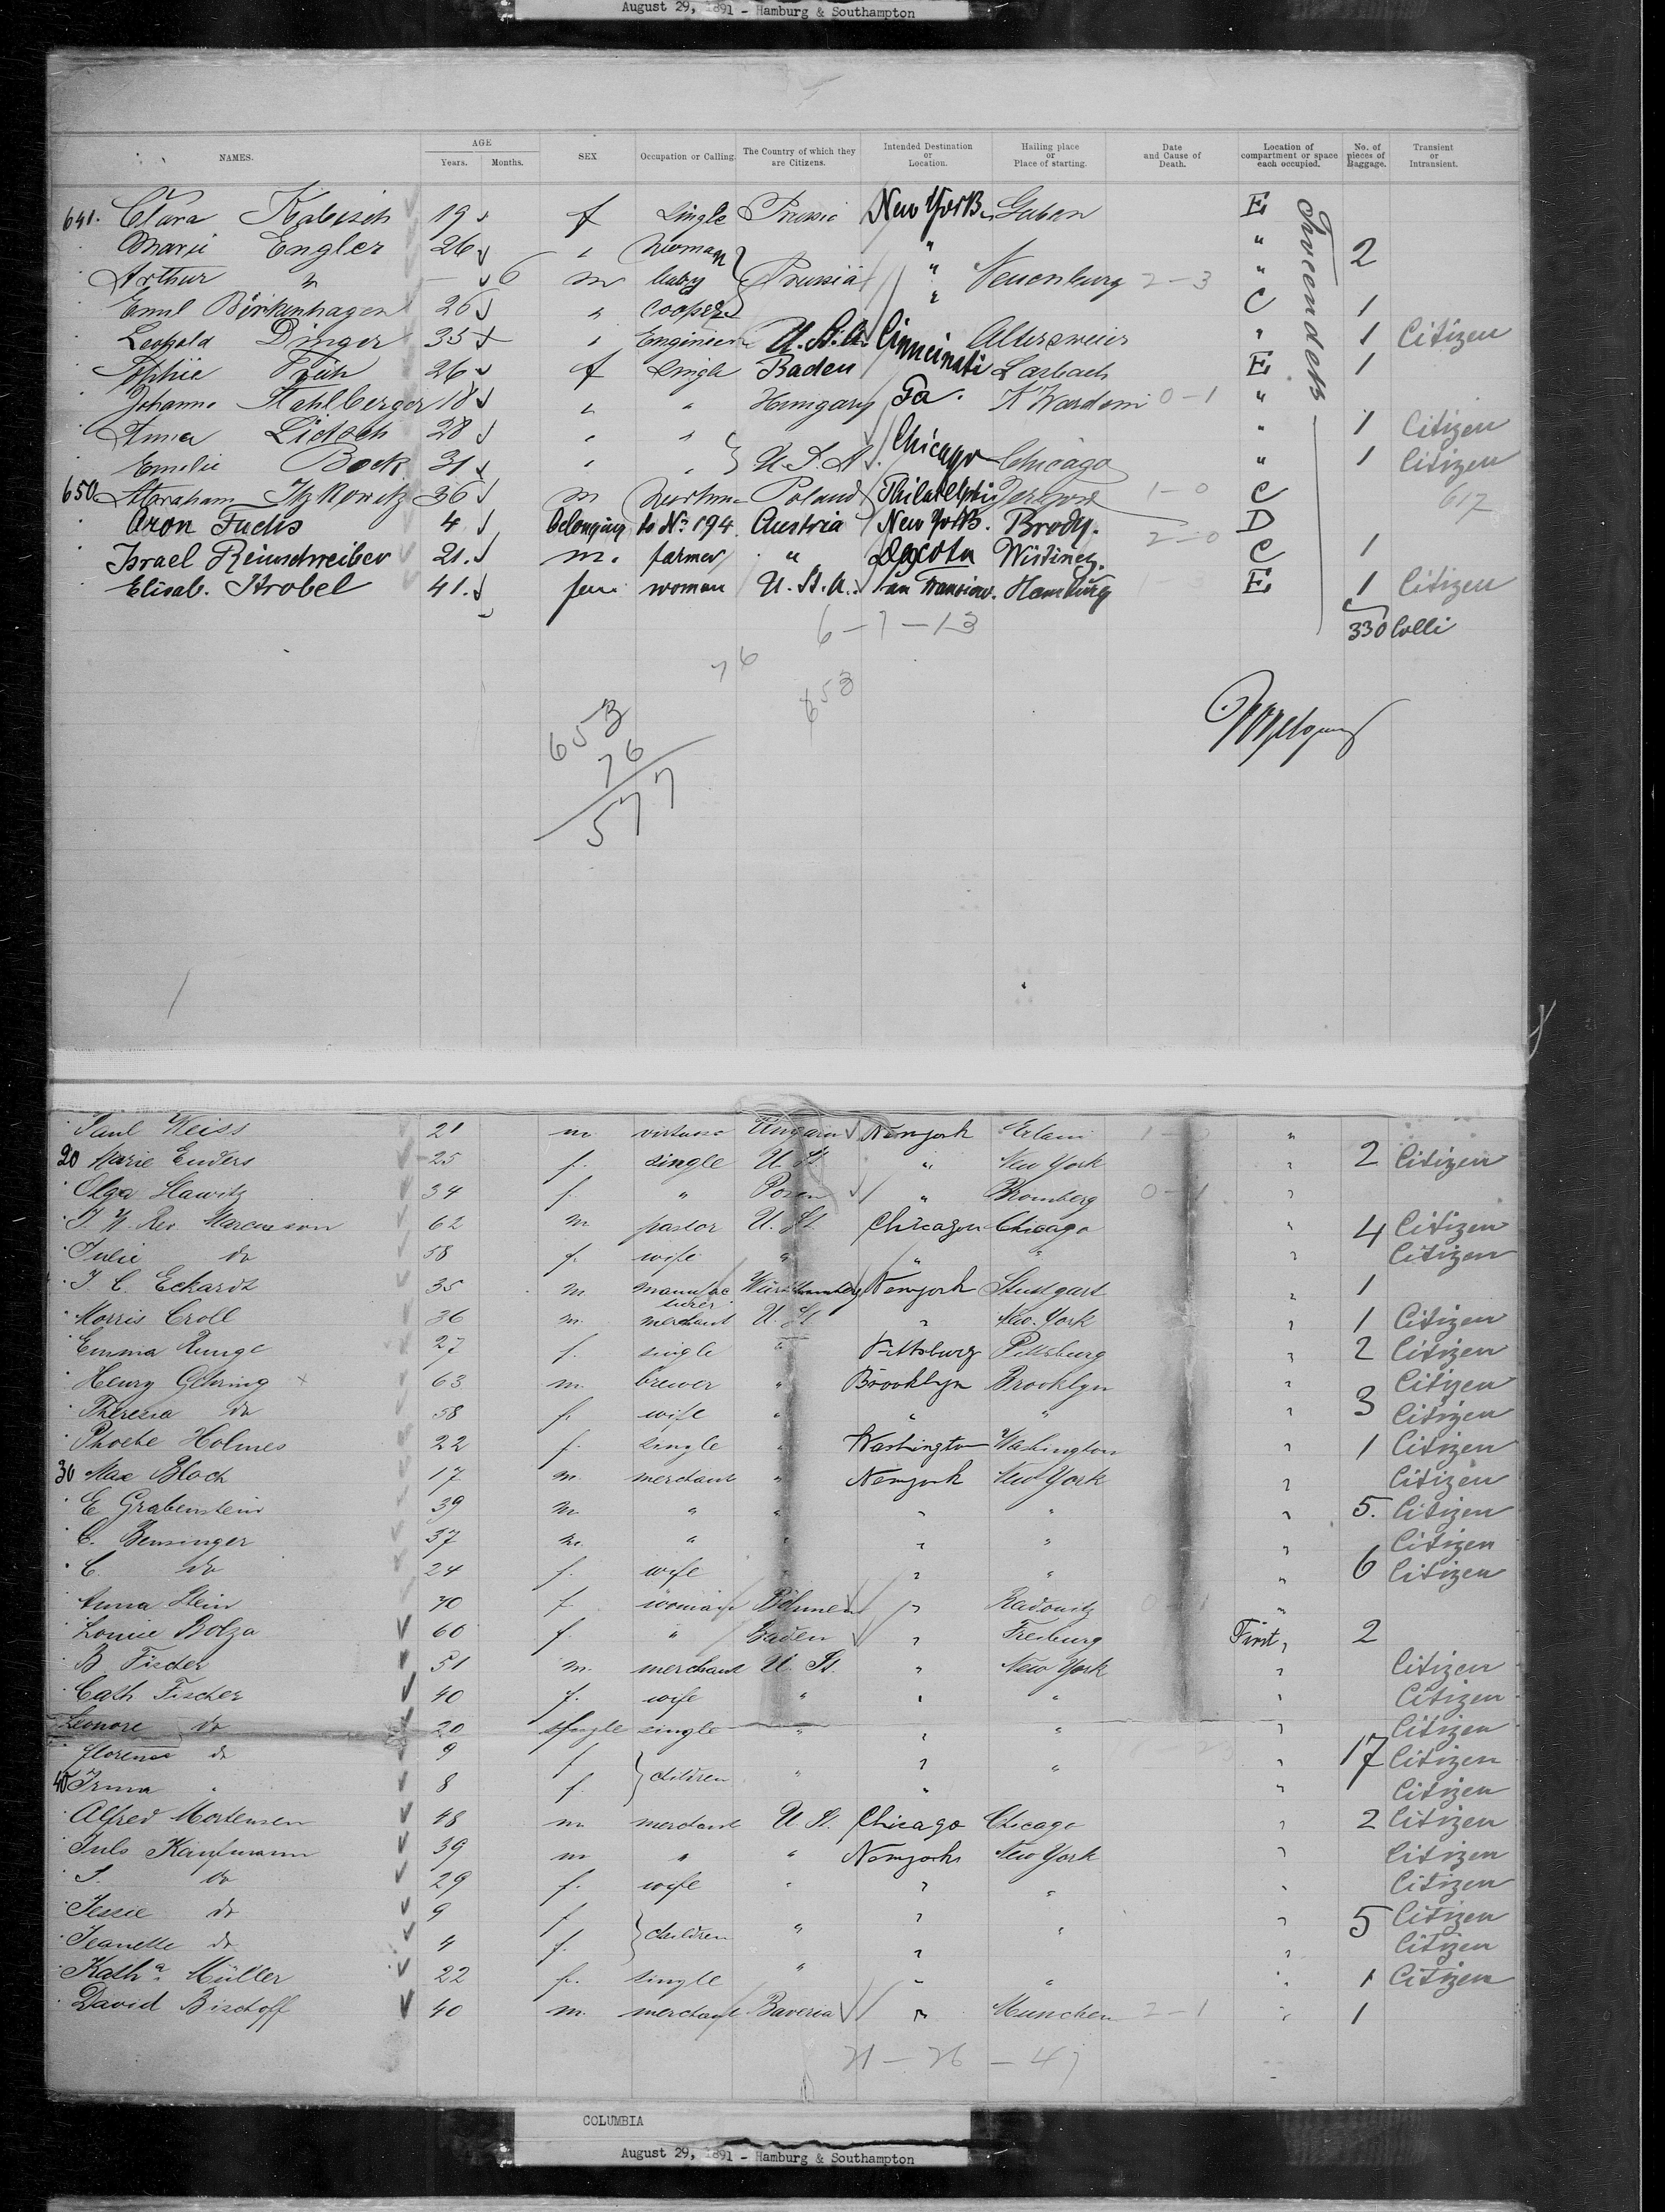 August 29, 1891 - Hamburg & Southampton
NAMES. AGE Years. Months. SEX Occupation or Calling. The Country of which they are Citizens. Intended Destination or Location. Hailing place or Place of starting. Date and Cause of Death. Location of compartment or space each occupied. No. of pieces of Baggage. Transient or Intransient.
641. Clara Kabisch 19 f Single Prussia New York Guben E
Marie Engler 26 " woman " " 2
Arthur " 6 m baby Prussia " Neuenburg 2-3 "
Emil Birkenhagen 26 " cooper " C 1
Leopold Dinger 35 " Engineer U.St.A. Cinncinati Altersweier " 1 Citizen
Sophie Früh 26 f Single Baden Lasbach E 1
Johanna Stahlberger 18 " " Hungary Pa. 0-1 "
Anna 28 " " " 1 Citizen
Emilie Bock 31 " " U.S.A. Chicago Chicago " 1 Citizen
650 Abraham Itzkowitz 36 m Poland Philadelphia 1-0 C 617
Aron Fuchs 4 belonging to No. 194 Austria New York. Brody. 2-0 D
Israel Reinschreiber 21. m. farmer " Dacota C 1
Elisab. Strobel 41. fem woman U.St.A. San Francisco. Hamburg E 1 Citizen
330 Colli
6-7-13
76
653
653
76
577
Paul Weiss 21 m virtuose Ungarn Newyork "
20 Marie Enders 25 f. single U. St " New York " 2 Citizen
Olga Slawitz 34 f. " Posen " Bromberg 0-1 "
Rev. Marcusson 62 m pastor U. St. Chicago Chicago " 4 Citizen
Julie do 58 f. wife " " " " Citizen
J. C. Eckardt 35 m manufacturer Württemberg Newyork Stuttgart " 1
Morris Croll 36 m. merchant U. St " New York " 1 Citizen
Emma Runge 27 f. single " Pittsburg Pittsburg " 2 Citizen
Henry Gehring 63 m. brewer " Brooklyn Brooklyn " Citizen
Theresia do 58 f. wife " " " " 3 Citizen
Phoebe Holmes 22 f. single " Washington Washington " 1 Citizen
30 Max Bloch 17 m. merchant " Newyork New York " Citizen
E. Grabenstein 39 m. " " " " " 5. Citizen
C. Bensinger 37 m. " " " " " Citizen
C. do 24 f. wife " " " " 6 Citizen
Anna Stein 70 f. woman Böhmen " Radonitz 0-1 "
Louise Bolza 60 f. " Baden " Freiburg First " 2
B Fischer 51 m. merchant U. St. " New York " Citizen
Cath. Fischer 40 f. wife " " " " Citizen
Leonore do 20 single single " " " " Citizen
Florence do 9 f children " " " " 17 Citizen
40 Irma " 8 f. " " Citizen
Alfred Mortensen 48 m merchant U. St. Chicago Chicago " 2 Citizen
Juls Kaufmann 39 m " " Newyork New York " Citizen
S. do 29 f. wife " " " " Citizen
Jessie do 9 f children " " " " 5 Citizen
Jeanette do 4 f. " " Citizen
Katha. Müller 22 f. single " " " " 1 Citizen
David Bischoff 40 m. merchant Bavaria " München 2-1 " 1
21-26-47
COLUMBIA
August 29, 1891 - Hamburg & Southampton